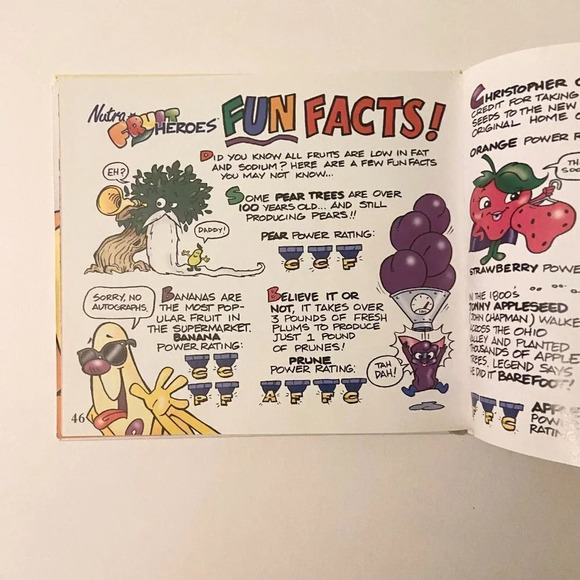 Nutra FRUIT HEROES FUN FACTS!
DID YOU KNOW ALL FRUITS ARE LOW IN FAT
AND SODIUM? HERE ARE A FEW FUN FACTS
YOU MAY NOT KNOW...
EH?
DADDY!
SOME PEAR TREES ARE OVER
100 YEARS OLD... AND STILL
PRODUCING PEARS!!
PEAR POWER RATING:
C C F
SORRY, NO
AUTOGRAPHS.
BANANAS ARE
THE MOST POP-
ULAR FRUIT IN
THE SUPERMARKET.
BANANA
POWER RATING:
P F
BELIEVE IT OR
NOT, IT TAKES OVER
3 POUNDS OF FRESH
PLUMS TO PRODUCE
JUST 1 POUND
OF PRUNES!
PRUNE
POWER RATING:
A F F C
TAH
DAH!
46
CHRISTOPHER
CREDIT FOR TAKING
SEEDS TO THE NEW
ORIGINAL HOME
ORANGE POWER
STRAWBERRY
IN THE 1800'S
APPLESEED
CHAPMAN)
ACROSS THE OHIO
VALLEY AND PLANTED
THOUSANDS OF
TREES. LEGEND SAYS
HE DID IT BAREFOOT!
F C